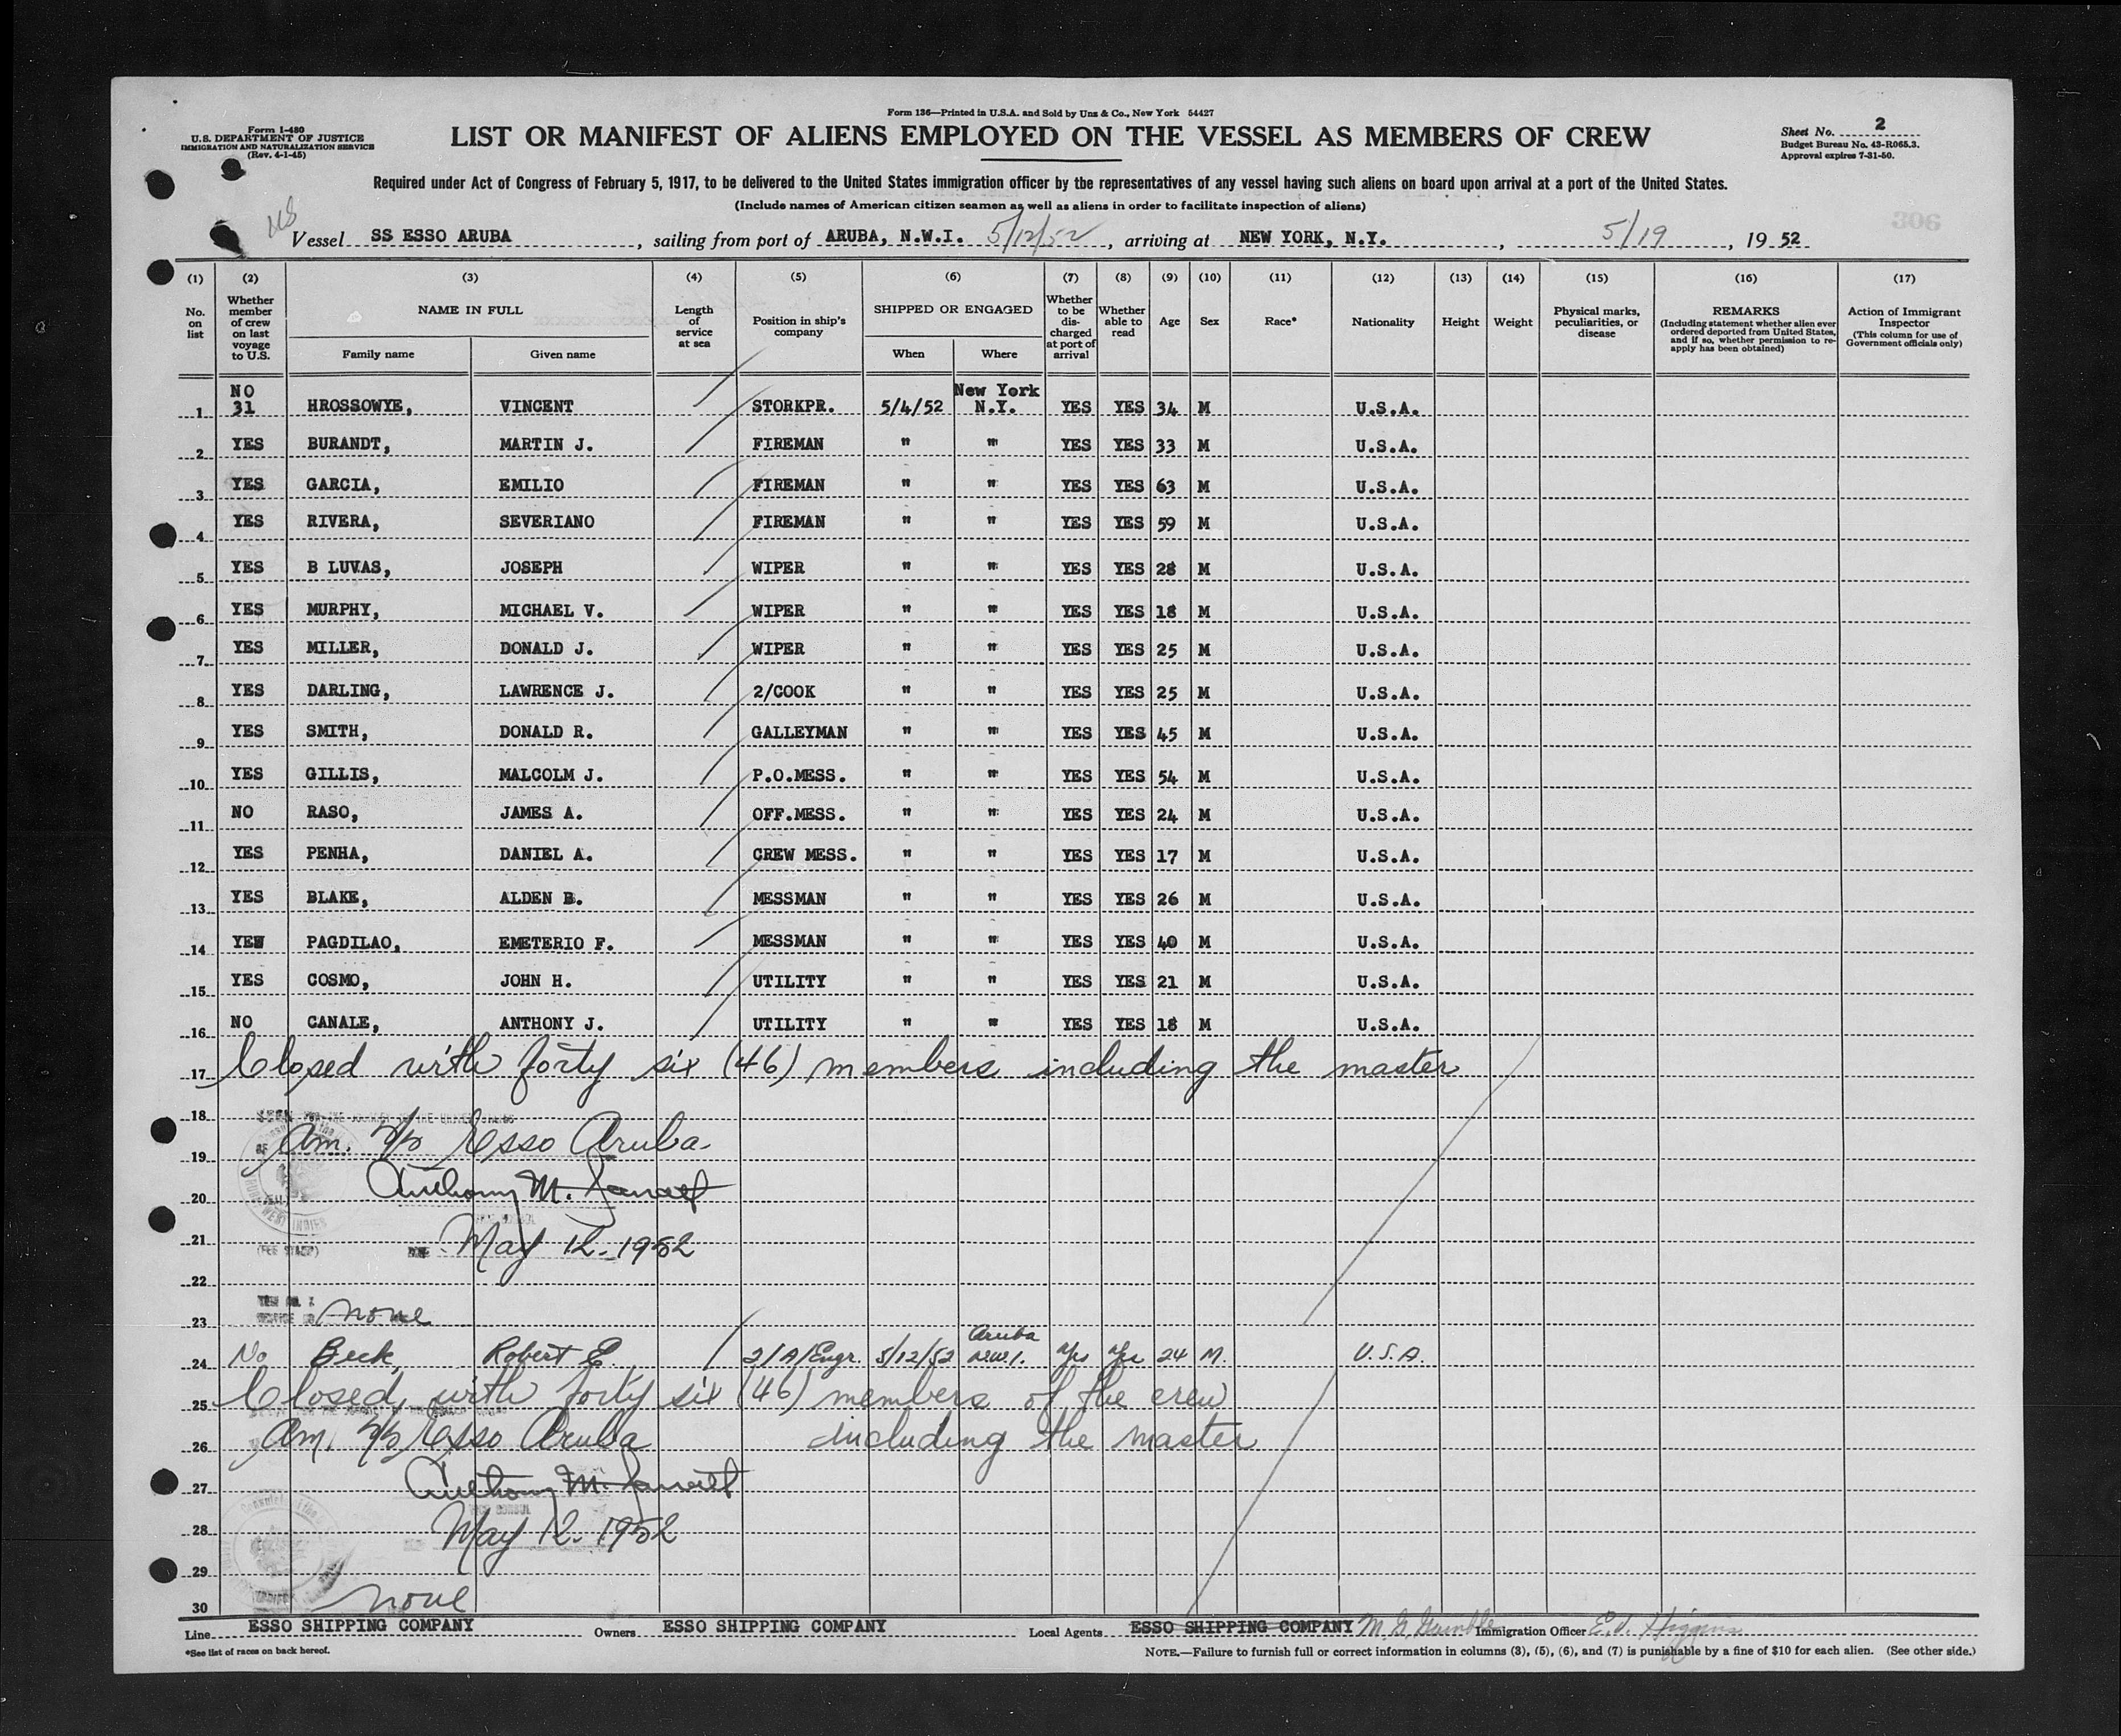 Form 136—Printed in U.S.A. and Sold by Unz & Co., New York 54427
Form I-480
U.S. DEPARTMENT OF JUSTICE
IMMIGRATION AND NATURALIZATION SERVICE
(Rev. 4-1-45)
LIST OR MANIFEST OF ALIENS EMPLOYED ON THE VESSEL AS MEMBERS OF CREW
Sheet No. 2
Budget Bureau No. 43-R065.3.
Approval expires 7-31-50.
Required under Act of Congress of February 5, 1917, to be delivered to the United States immigration officer by the representatives of any vessel having such aliens on board upon arrival at a port of the United States.
(Include names of American citizen seamen as well as aliens in order to facilitate inspection of aliens)
306
Vessel SS ESSO ARUBA, sailing from port of ARUBA, N.W.I. 5/12/52, arriving at NEW YORK, N.Y., 5/19, 19 52
(1) (2) (3) (4) (5) (6) (7) (8) (9) (10) (11) (12) (13) (14) (15) (16) (17)
No. on list
Whether member of crew on last voyage to U.S.
NAME IN FULL
Family name
Given name
Length of service at sea
Position in ship's company
SHIPPED OR ENGAGED
When
Where
Whether to be discharged at port of arrival
Whether able to read
Age
Sex
Race*
Nationality
Height
Weight
Physical marks, peculiarities, or disease
REMARKS
(Including statement whether alien ever ordered deported from United States, and if so, whether permission to reapply has been obtained)
Action of Immigrant Inspector
(This column for use of Government officials only)
1 NO 31 HROSSOWYE, VINCENT STORKPR. 5/4/52 New York N.Y. YES YES 34 M U.S.A.
2 YES BURANDT, MARTIN J. FIREMAN " " YES YES 33 M U.S.A.
3 YES GARCIA, EMILIO FIREMAN " " YES YES 63 M U.S.A.
4 YES RIVERA, SEVERIANO FIREMAN " " YES YES 59 M U.S.A.
5 YES B LUVAS, JOSEPH WIPER " " YES YES 28 M U.S.A.
6 YES MURPHY, MICHAEL V. WIPER " " YES YES 18 M U.S.A.
7 YES MILLER, DONALD J. WIPER " " YES YES 25 M U.S.A.
8 YES DARLING, LAWRENCE J. 2/COOK " " YES YES 25 M U.S.A.
9 YES SMITH, DONALD R. GALLEYMAN " " YES YES 45 M U.S.A.
10 YES GILLIS, MALCOLM J. P.O.MESS. " " YES YES 54 M U.S.A.
11 NO RASO, JAMES A. OFF.MESS. " " YES YES 24 M U.S.A.
12 YES PENHA, DANIEL A. CREW MESS. " " YES YES 17 M U.S.A.
13 YES BLAKE, ALDEN B. MESSMAN " " YES YES 26 M U.S.A.
14 YES PAGDILAO, EMETERIO F. MESSMAN " " YES YES 40 M U.S.A.
15 YES COSMO, JOHN H. UTILITY " " YES YES 21 M U.S.A.
16 NO CANALE, ANTHONY J. UTILITY " " YES YES 18 M U.S.A.
17 Closed with forty six (46) members including the master
18
19 Am. S/S Esso Aruba
20 Anthony M.
21 May 12, 1952
22
23 None
24 No Beck, Robert E. 2/A/Engr. 5/12/52 Aruba N.W.I. Yes Yes 24 M. U.S.A.
25 Closed, with forty six (46) members of the crew
26 Am. S/S Esso Aruba including the master
27 Anthony M.
VICE CONSUL
28 May 12, 1952
29
30 None
Line ESSO SHIPPING COMPANY Owners ESSO SHIPPING COMPANY Local Agents ESSO SHIPPING COMPANY Immigration Officer E. J. Higgins
*See list of races on back hereof.
NOTE.—Failure to furnish full or correct information in columns (3), (5), (6), and (7) is punishable by a fine of $10 for each alien. (See other side.)